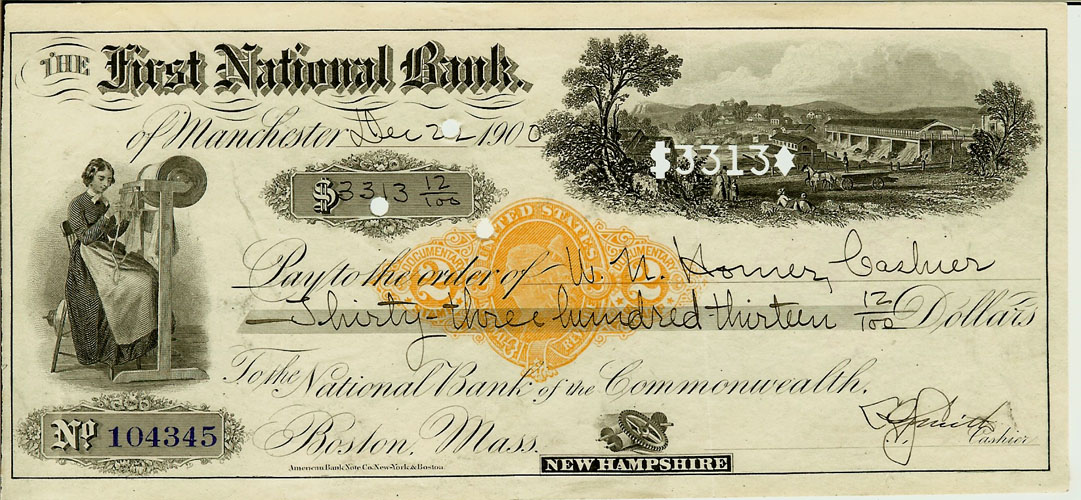 THE First National Bank.
of Manchester Dec 22 1900
$3313◆
$3313 12/100
UNITED STATES
DOCUMENTARY
2 2
Pay to the order of W. N. Homer, Cashier
Thirty-three hundred thirteen 12/100 Dollars
To the National Bank of the Commonwealth,
Boston, Mass.
Cashier
No 104345
American Bank Note Co. New-York & Boston.
NEW HAMPSHIRE